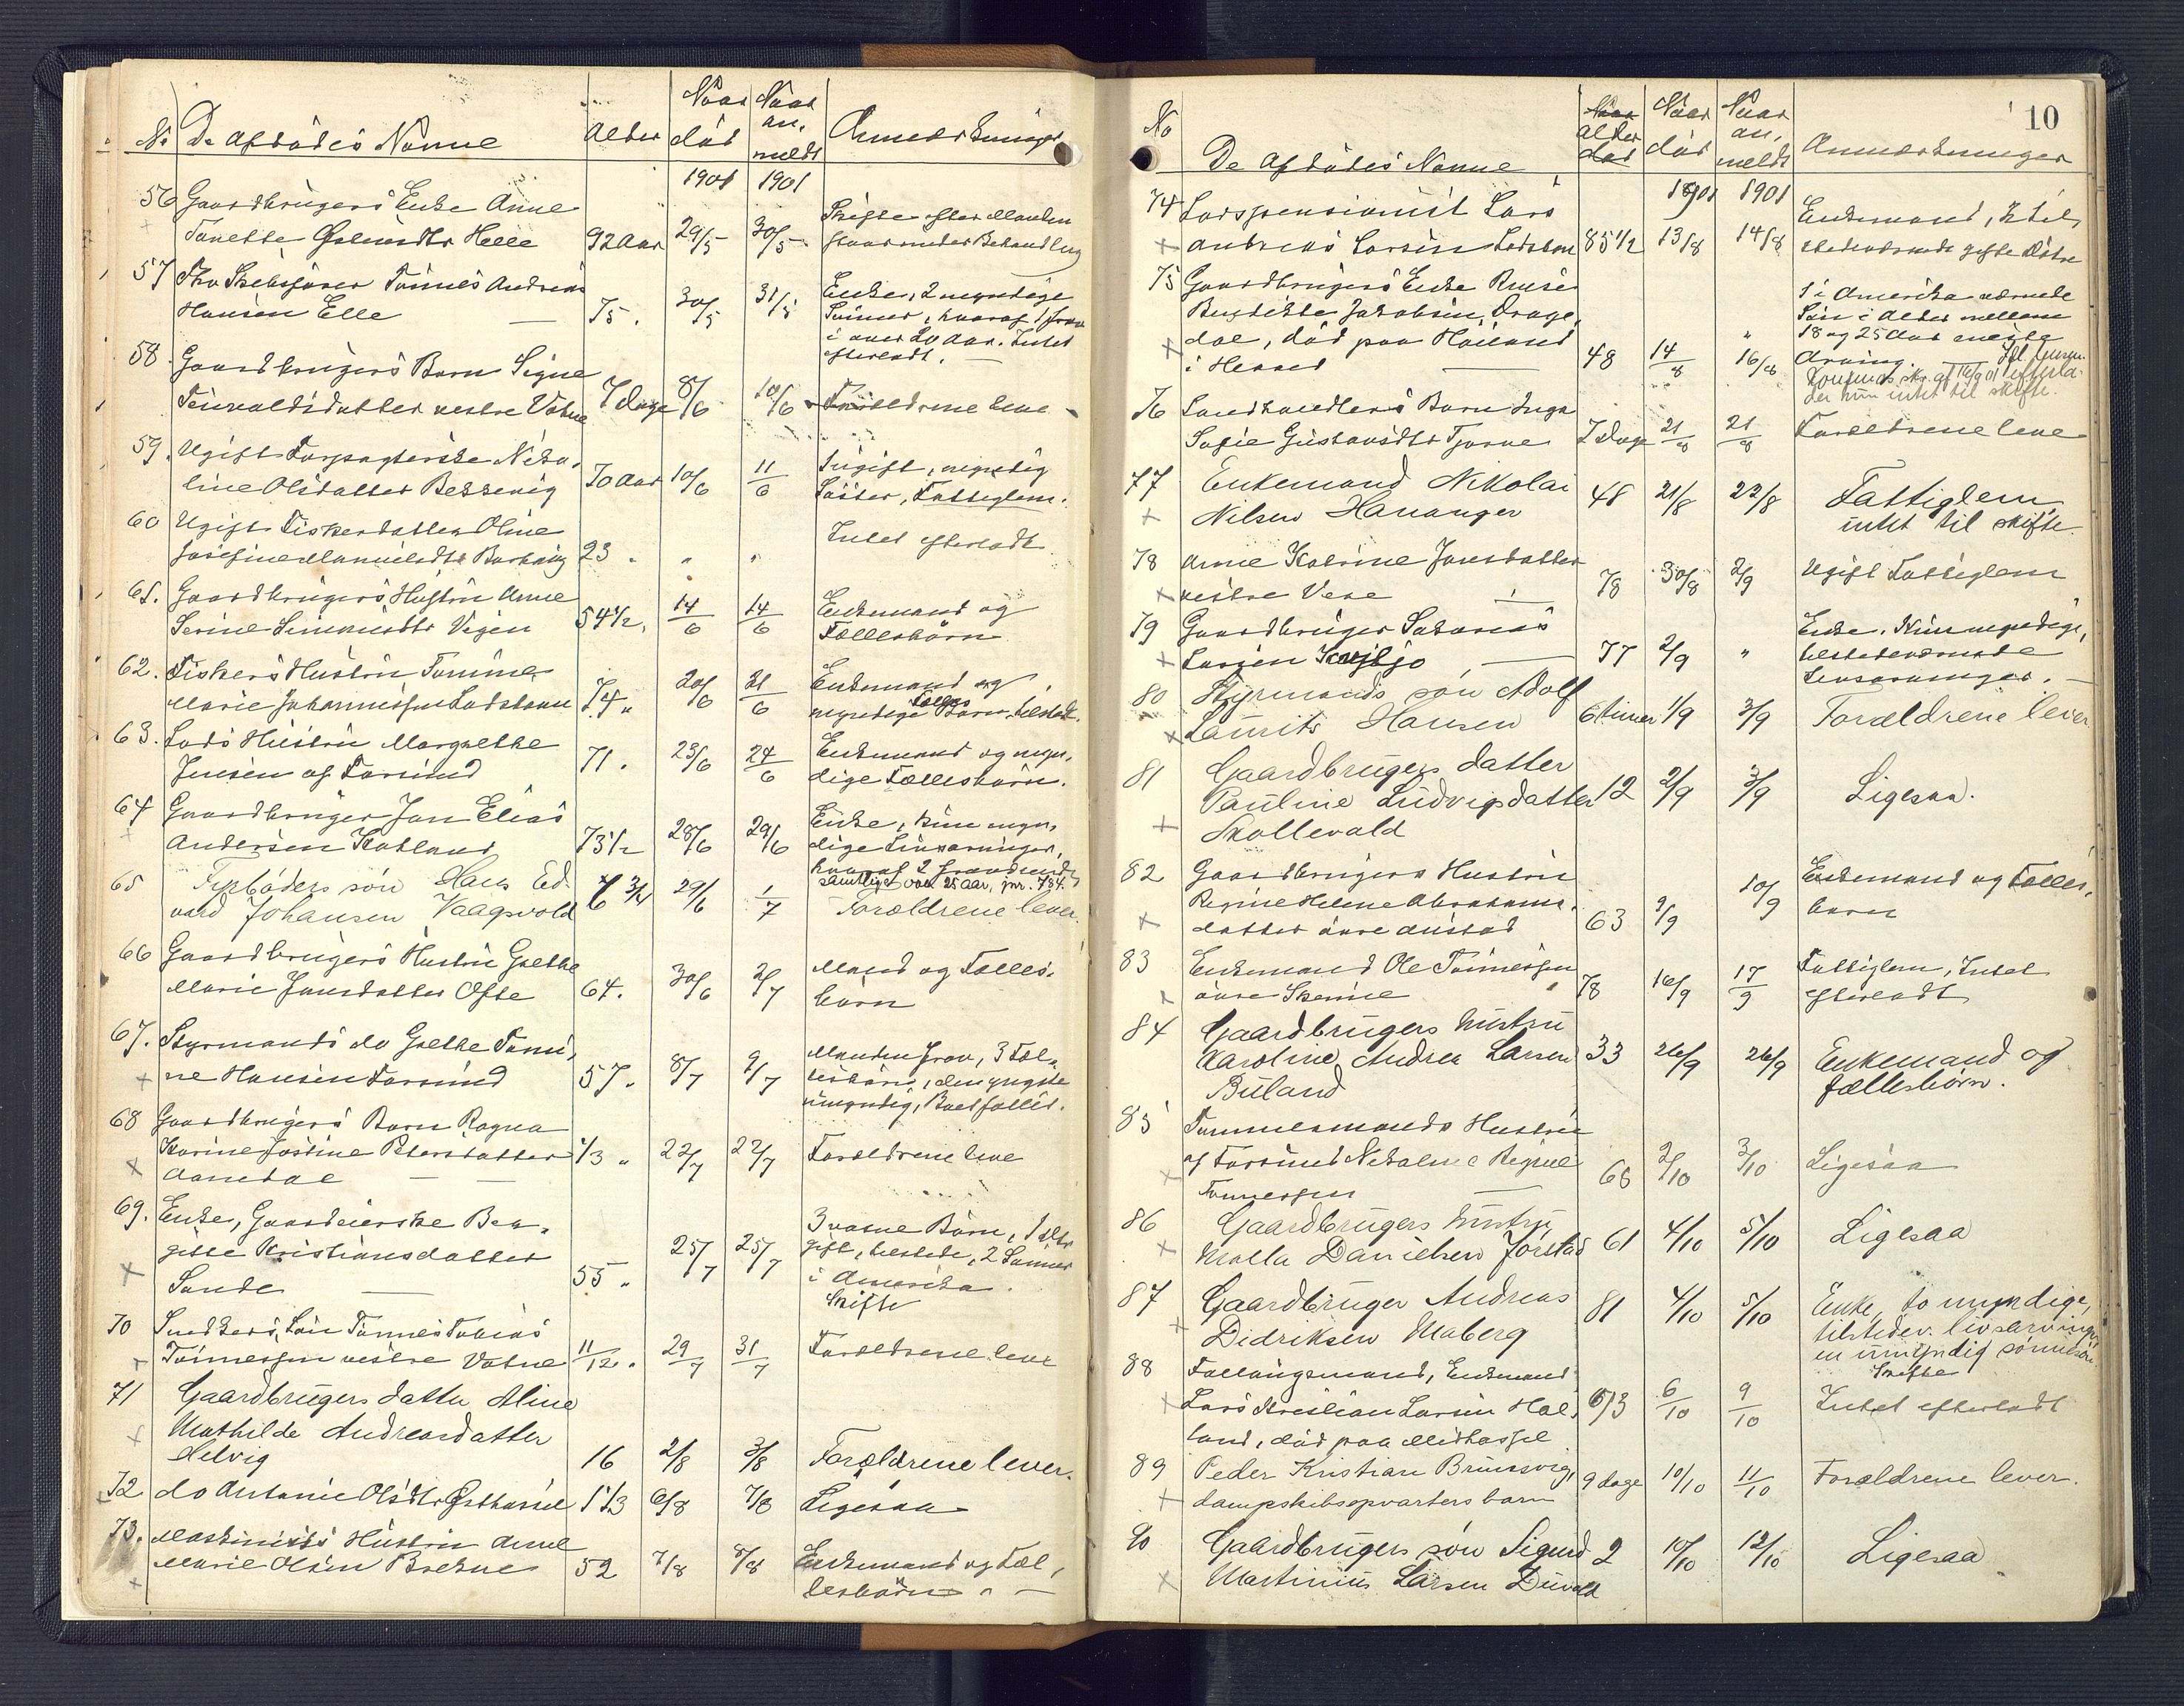 No De Afdødes Navne Alder Naar død Naar anmeldt Anmærkninger
1901 1901
56 Gaardbrugers Enke Anne
Tonette Helle 92 Aar 29/5 30/5
Skifte efter Manden
staar under Behandling
57 Fhv Skibsfører Tønnes Andreas
Hansen Elle 75. 30/5 31/5
Enke, 2 myndige
Sønner, hvoraf 1 frav
i over 20 Aar. Intet
efterladt.
58. Gaardbrugers Barn Signe
Tenvaldsdatter vestre Vatne 7 Dage 8/6 10/6 Forældrene leve
59. Ugift Forpagterske Niko-
line Olsdatter Bessevig 70 Aar 10/6 11/6
1 ugift, myndig
Søster, Fattiglem.
60 Ugift Fiskerdatter Oline
Josefine 23 " " Intet efterladt
61. Gaardbrugers Hustru Anne
Serine Simonsdtr Vigen 54 1/2 14/6 14/6
Enkemand og
Fællesbørn
62. Fiskers Hustru Tomine
Marie Johannessen Lodshavn 74 " 20/6 21/6
Enkemand og
myndige Fælles Børn, tilstede.
63. Lods Hustru Margrethe
Jensen af Farsund 71. 23/6 24/6
Enkemand og myn-
dige Fællesbørn.
64 Gaardbruger Jan Elias
Andersen Kathland 73 1/2 28/6 29/6
Enke, kun myn-
dige Livsarvinger,
hvoraf 2 fraværende
samtlige over 25 aar, jnr. 434.
65 Fyrbøders søn Hans Ed-
vard Johansen Vaagsvold 6 3/4 29/6 1/7 Forældrene lever.
66 Gaardbrugers Hustru Grethe
Marie Jansdatter Ofte 64. 30/6 2/7
Mand og Fælles-
børn
67. Styrmands do Grethe Tomi-
ne Hansen Farsund 57. 8/7 9/7
Manden frav, 3 Fæl-
lesbørn, den yngste
umyndig, Boet fallit.
68 Gaardbrugers Barn Ragna
Karine Jostine Petersdatter
Aamdal 1/3 " 22/7 22/7 Forældrene leve
69. Enke, Gaardeierske Ber-
gitte Kristiansdatter
Sande 55 " 25/7 25/7
3 voxne Børn, 1 dtr
gift, tilstede, 2 Sønner
i Amerika.
Skifte
70 Snedkers Søn Tønnes Tobias
Tønnessen vestre Vatne 11/12. 29/7 31/7 Forældrene leve
71 Gaardbrugers datter Aline
Mathilde Andreasdatter
Helvig 16 2/8 3/8 Forældrene lever.
72 do Antonie Olsdtr Østhassel 1 1/3 6/8 7/8 Ligesaa
73. Maskinists Hustru Anne
Marie Olsen Brekne 52 7/8 8/8
Enkemand og Fæl-
lesbørn
10
No De Afdødes Navne Alder Naar død Naar anmeldt Anmærkninger
1901 1901
74 Lodspensionist Lars
Andreas Larsen Lodshavn 85 1/2 13/8 14/8
Enkemand, 2 til-
stedeværende gifte Døtre
75 Gaardbrugers Enke
Bendikte Jakobsen, Drage-
dal, død paa Høiland
i Hersed 48 14/8 16/8
1 i Amerika værende
Søn i Alder mellem
18 og 25 Aar eneste
Arving.
der hun intet til skifte.
76 Landhandlers Barn Inga
Sofie Gustavsdtr Tjorve 7 Dage 21/8 21/8 Forældrene leve
77 Enkemand Nikolai
Nilsen Hananger 48 21/8 22/8
Fattiglem,
intet til skifte.
78 Anne Katrine Jansdatter
vestre Vere 78 30/8 2/9 Ugift Fattiglem
79 Gaardbruger Sakarias
Larsen 77 2/9 "
Enke. Kun myndige,
tilstedeværende
Livsarvinger.
80 Styrmands søn Adolf
Laurits Hansen 6 timer 1/9 3/9 Forældrene lever
81 Gaardbrugers datter
Pauline Ludvigsdatter
Skollevold 12 2/9 3/9 Ligesaa.
82 Gaardbrugers Hustru
Regine Helene Abrahams-
datter øvre Austad 63 9/9 10/9
Enkemand og Fælles-
børn
83 Enkemand Ole Tønnessen
øvre Skeime 78 16/9 17/9
Fattiglem, Intet
efterladt
84 Gaardbrugers hustru
Karoline Andrea Larsen
Buland 33 26/9 26/9
Enkemand og
fællesbørn.
85 Tømmermands Hustru
af Farsund Nikoline Regine
Tønnessen 66 2/10 3/10 Ligesaa
86 Gaardbrugers hustru
Malla Danielsen Jørstad 61 4/10 5/10 Ligesaa
87 Gaardbruger Andreas
Didriksen Maberg 81 4/10 5/10
Enke, to myndige,
tilstedev. livsarvinger
en umyndig sønnesøn
Skifte
88 Føllaugsmand, Enkemand
Lars Kristian Larsen Hal-
land, død paa Midhassel 63 6/10 9/10 Intet efterladt
89 Peder Kristian Brunsvig,
dampskibsopvarters barn 9 dage 10/10 11/10 Forældrene lever.
90 Gaardbrugers søn Sigurd
Martinius Larsen Duvold 2 10/10 12/10 Ligesaa